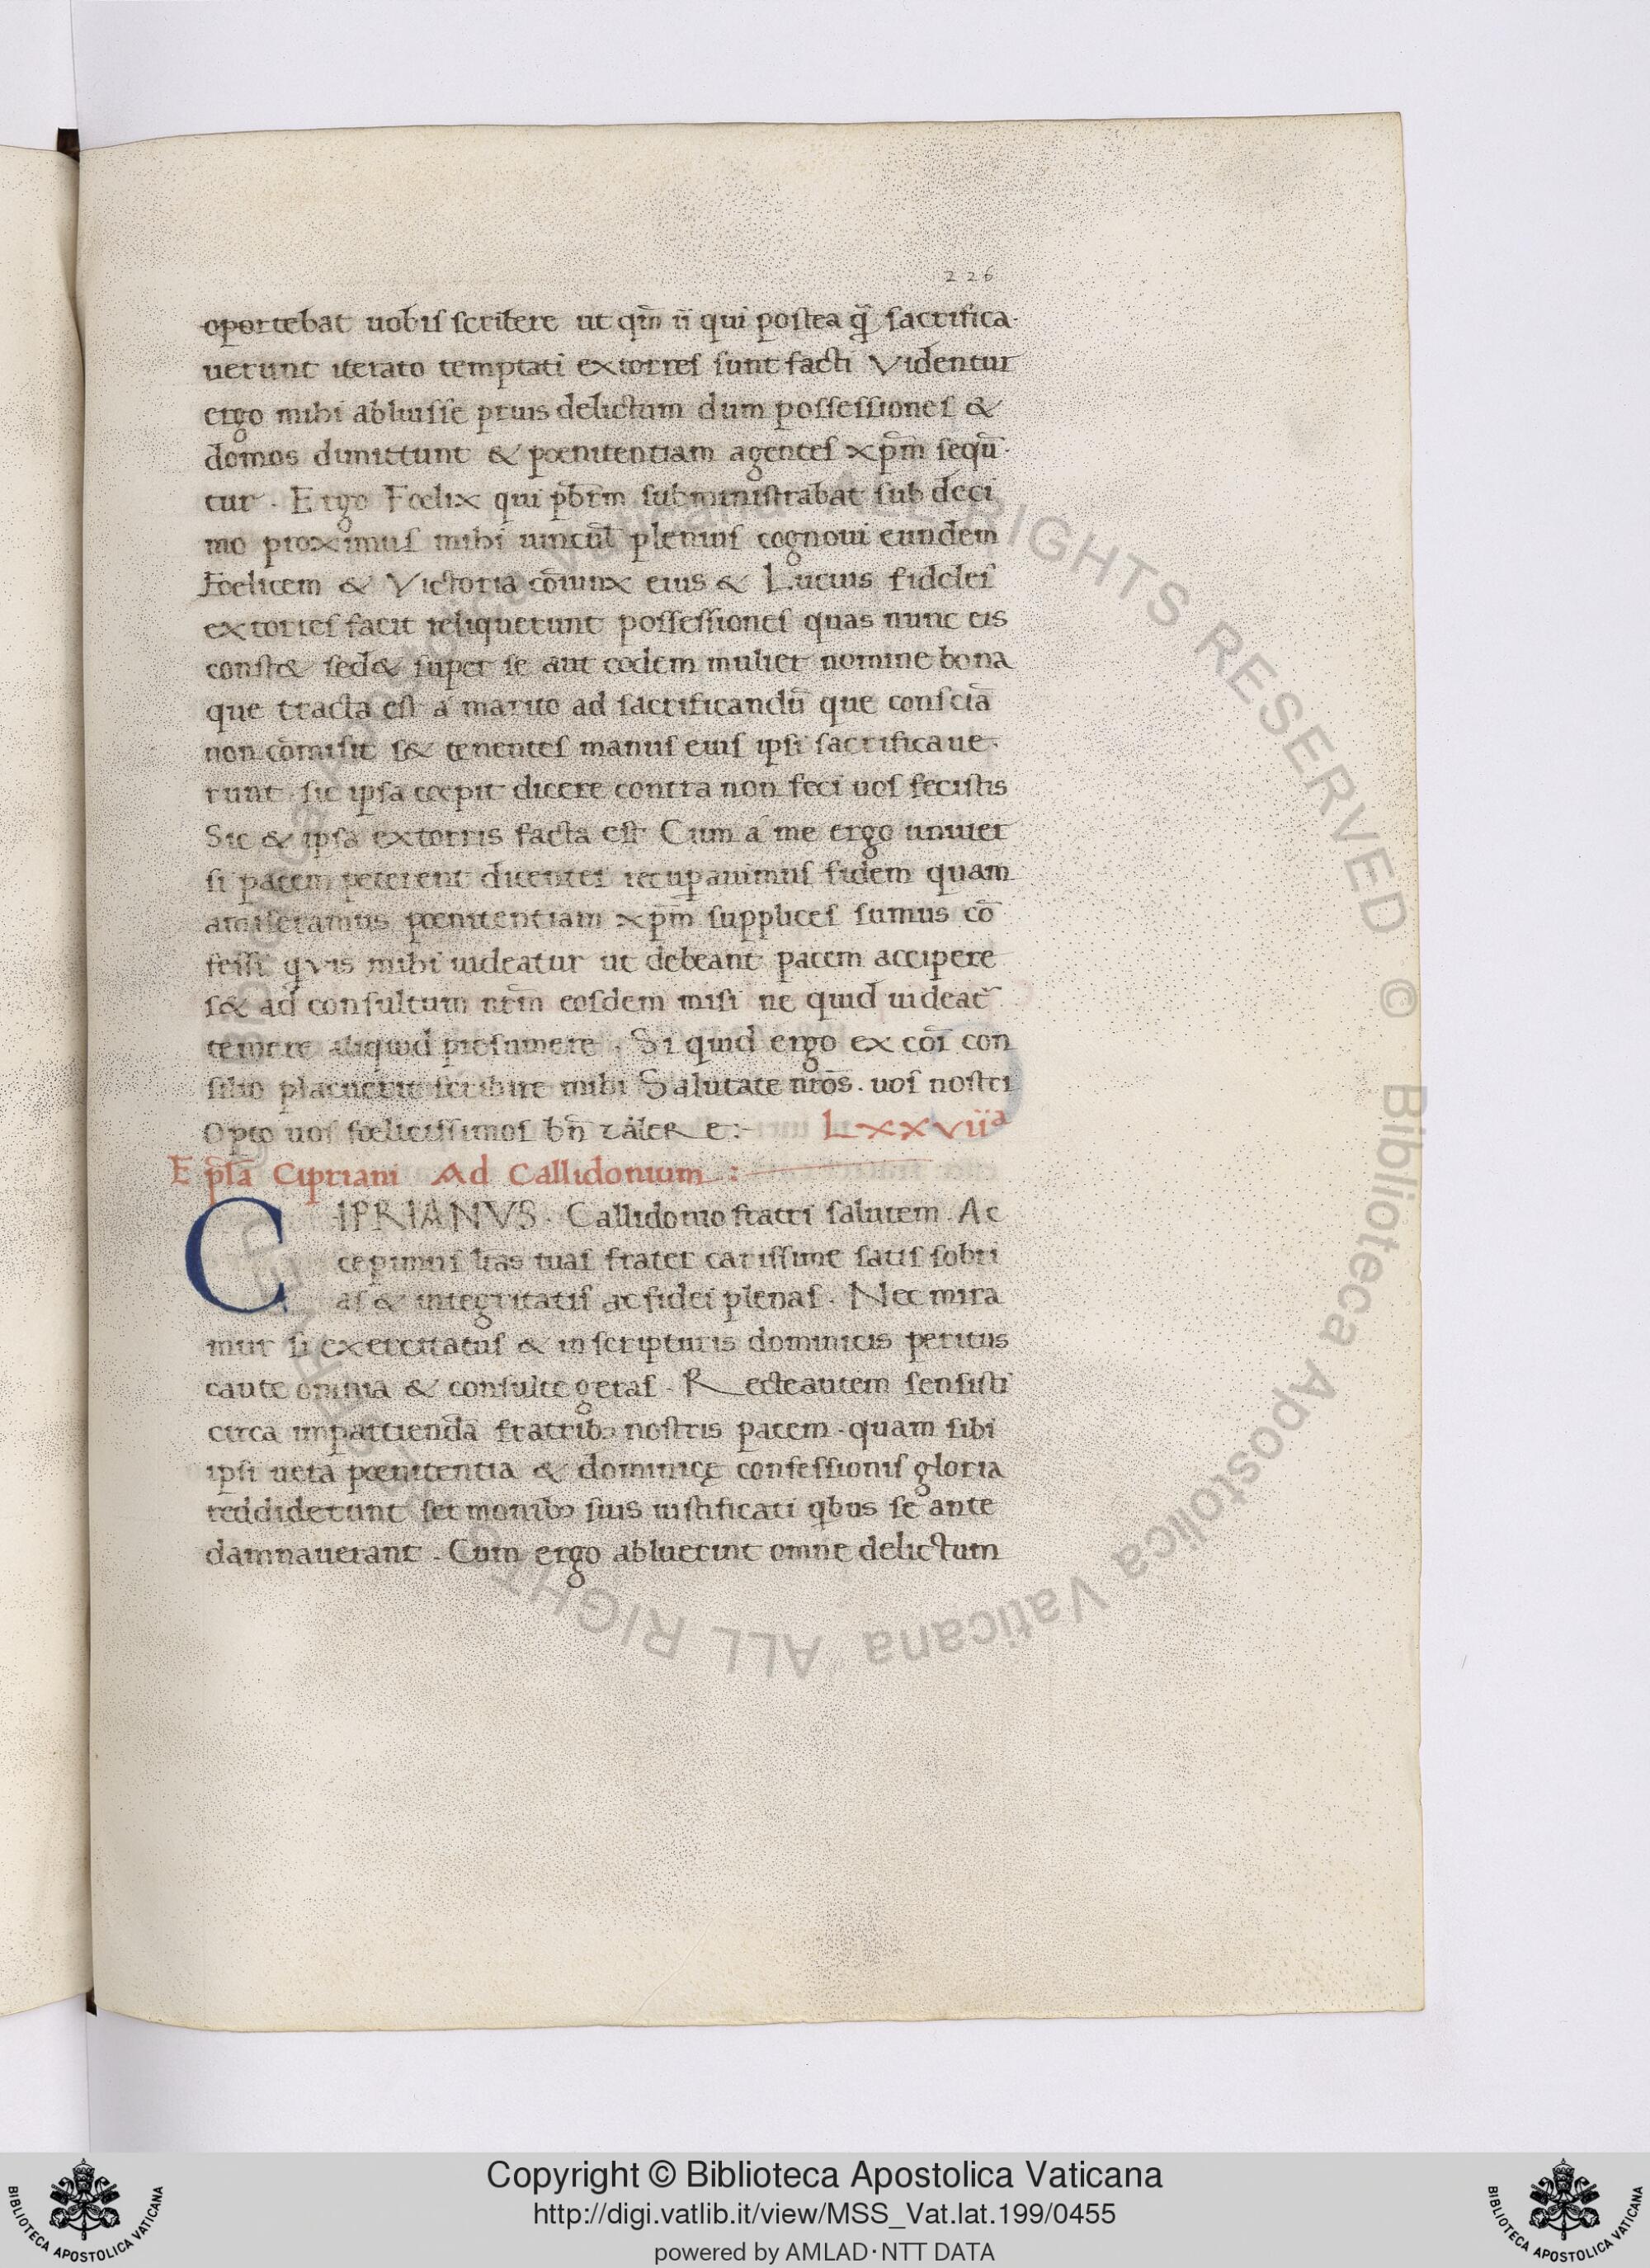 226
oportebat uobis scribere ut qm̄ ii qui postea q̄ sacrifica-
uerunt iterato temptati extorres sunt facti Videntur
ergo mihi abluisse prius delictum dum possessiones &
domos dimittunt & pœnitentiam agentes xp̄m sequū-
tur . Ergo Fœlix qui pb̄rm subministrabat sub deci
mo proximus mihi uincul̄ plenius cognoui eundem
Fœlicem & Victoria cōiunx eius & Lucius fideles
extorres facit reliquerunt possessiones quas nunc eis
const& sed& super se aut eodem mulier nomine bona
que tracta est a marito ad sacrificandū que consciā
non cōmisit s& tenentes manus eius ipsi sacrificaue-
runt sic ipsa cœpit dicere contra non feci uos fecistis
Sic & ipsa extorris facta est Cum a me ergo uniuer
si pacem peterent dicentes recuꝑauimus fidem quam
amiseramus pœnitentiam xp̄m supplices sumus cō
fessi quis mihi uideatur ut debeant pacem accipere
s& ad consultum nr̄m eosdem misi ne quid uideat̄
temere aliquid presumere . Si quid ergo ex cōi con
silio placuerit scribite mihi Salutate nr̄os . uos nostri
Opto uos fœlicissimos bn̄ ualeRe :- LXXVIIª
Ep̄sa Cipriani Ad Callidonium :
CIPRIANVS . Callidonio fratri salutem . Ac
cepimus lr̄as tuas frater carissime satis sobri
as & integritatis ac fidei plenas . Nec mira
mur si exercitatus & in scripturis dominicis peritus
caute omnia & consulte geras . Recte autem sensisti
circa impartienda fratribꝫ nostris pacem . quam sibi
ipsi uera pœnitentia & dominicę confessionis gloria
reddiderunt sermonibꝫ suis iustificati qbus se ante
damnauerant . Cum ergo abluerint omne delictum
© Biblioteca Apostolica Vaticana ALL RIGHTS RESERVED
BIBLIOTECA APOSTOLICA VATICANA
Copyright © Biblioteca Apostolica Vaticana
http://digi.vatlib.it/view/MSS_Vat.lat.199/0455
powered by AMLAD·NTT DATA
BIBLIOTECA APOSTOLICA VATICANA